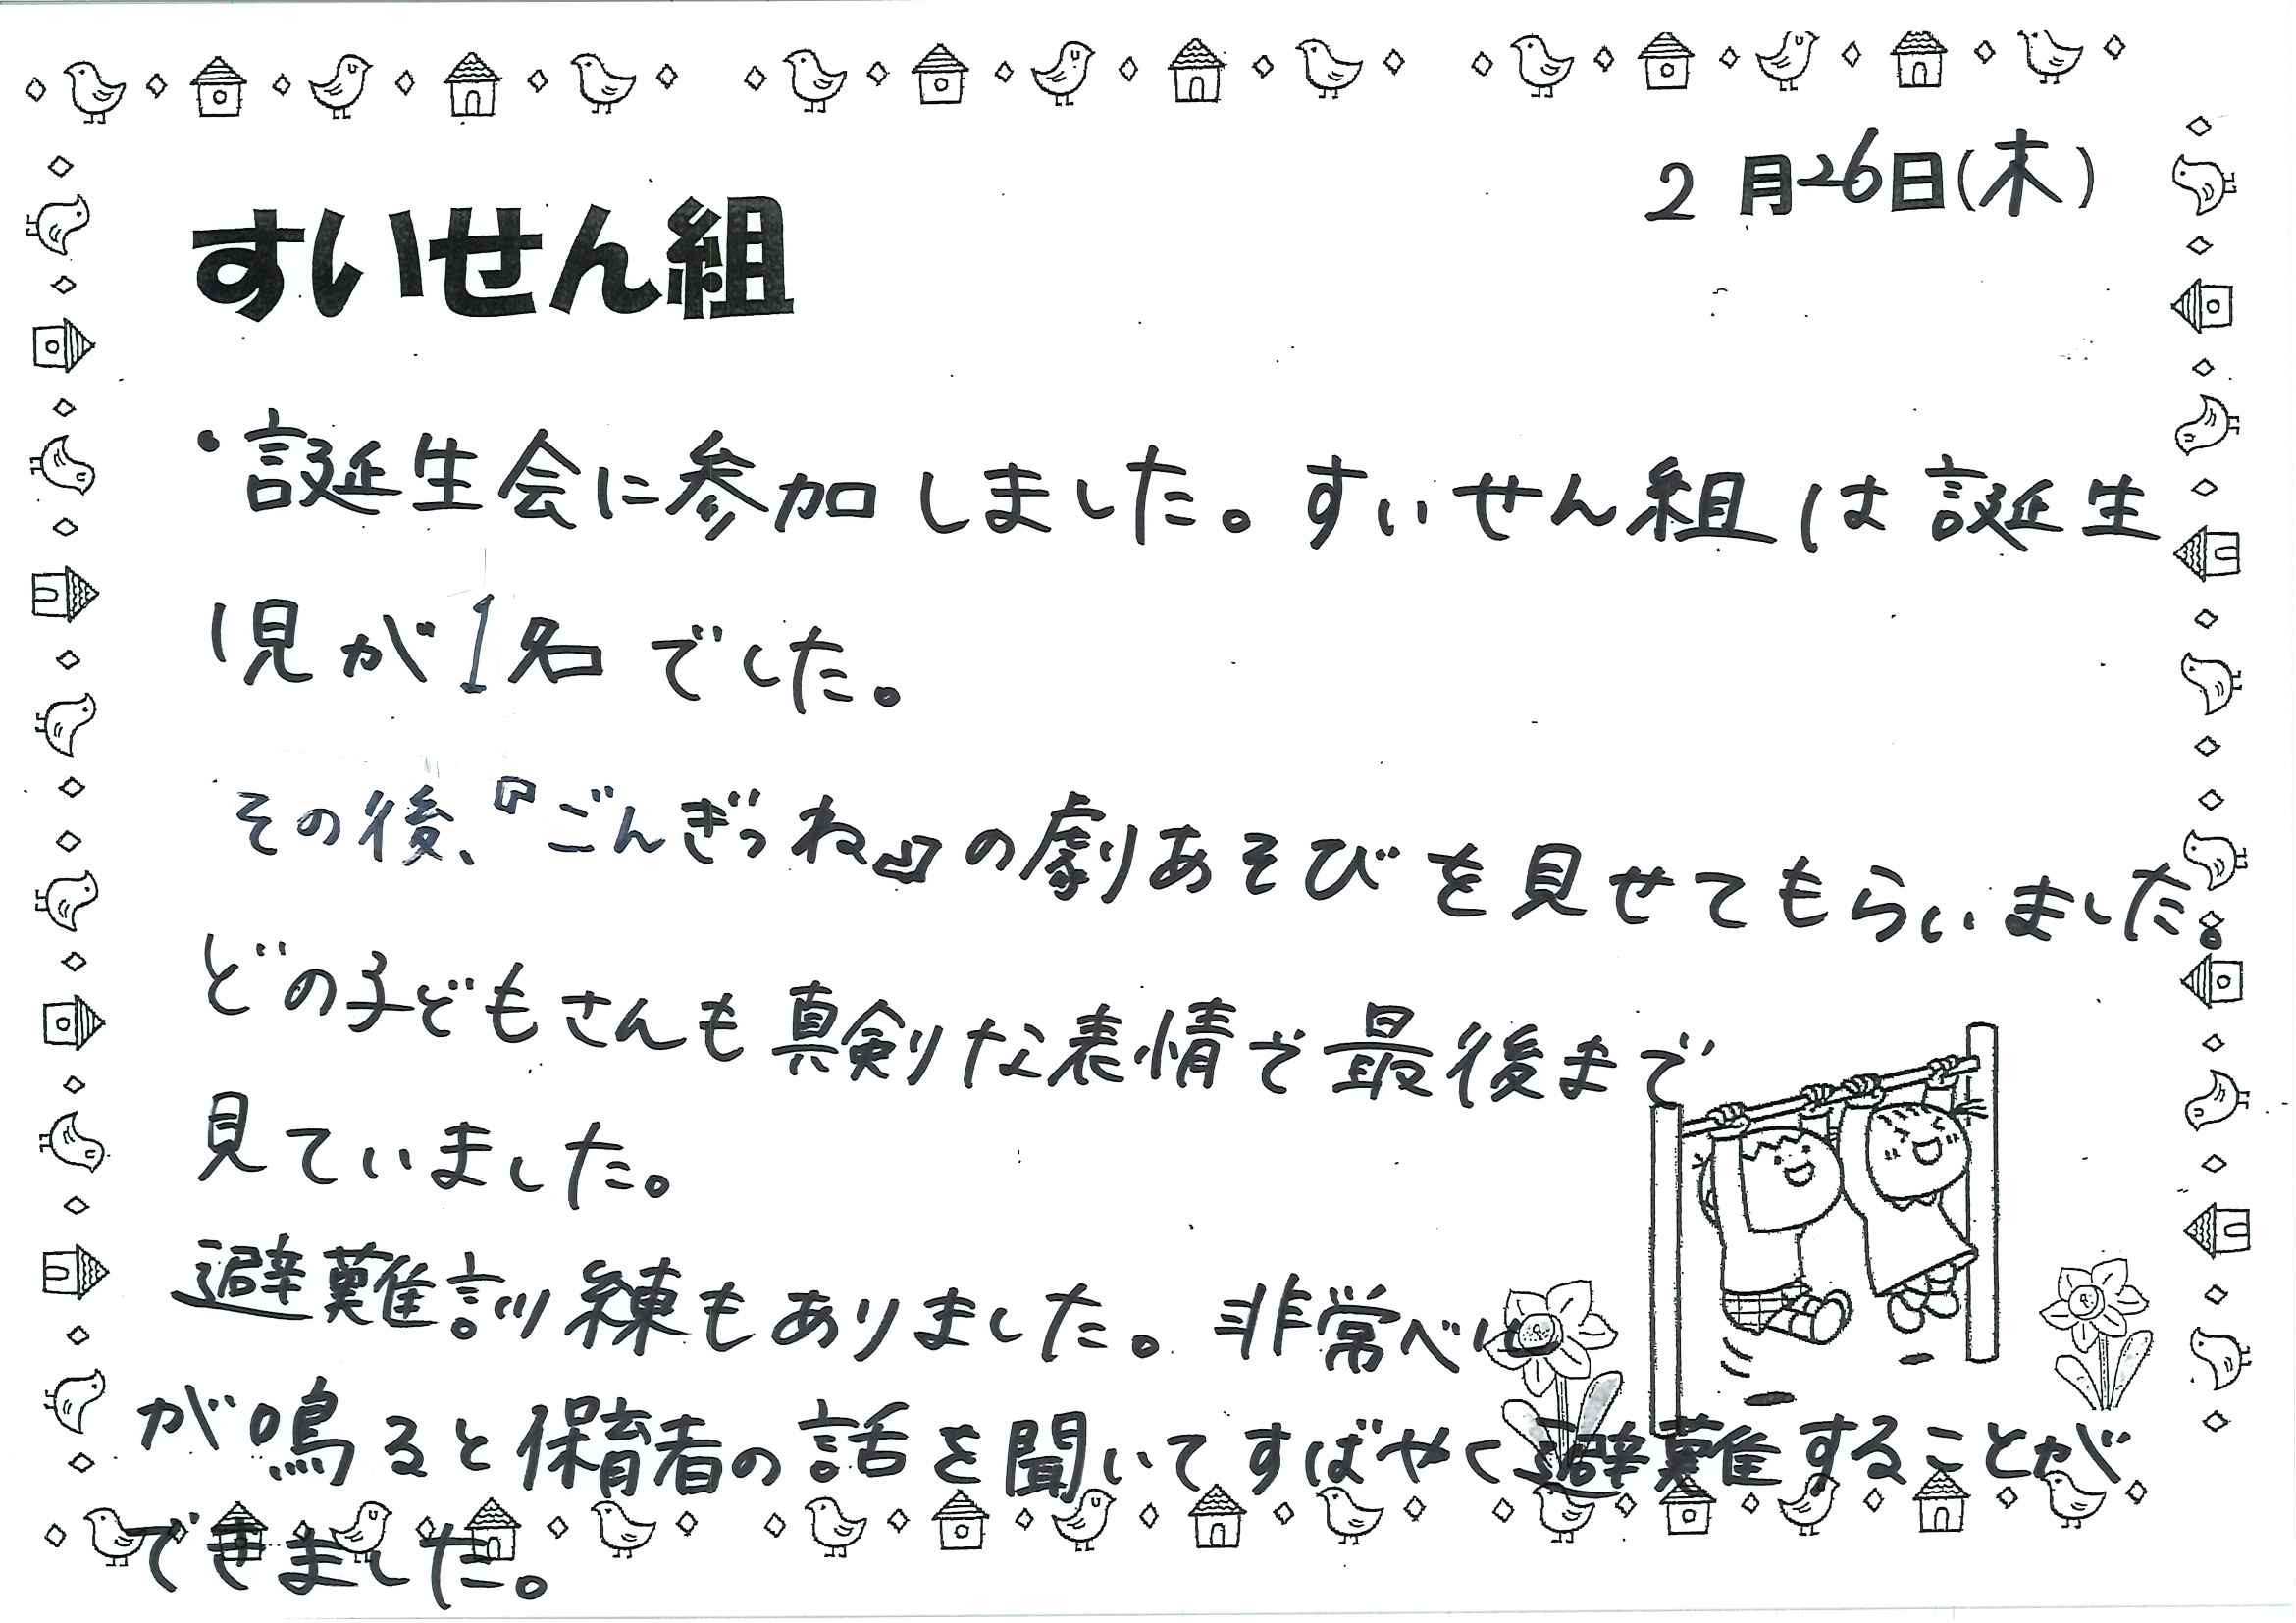 2月26日(木)
すいせん組
・誕生会に参加しました。すいせん組は誕生
児が1名でした。
その後、『ごんぎつね』の劇あそびを見せてもらいました。
どの子どもさんも真剣な表情で最後まで
見ていました。
避難訓練もありました。非常ベル
が鳴ると保育者の話を聞いてすばやく避難することが
できました。